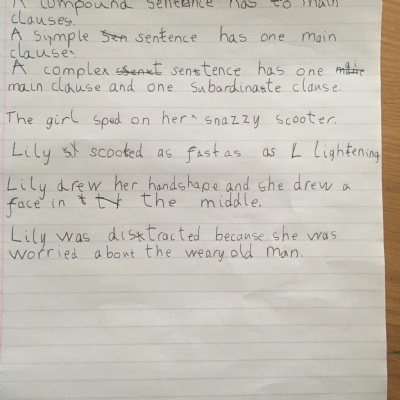 A compound sentence has to main
clauses.
A symple sentence has one main
clause.
A complex senstence has one
main clause and one subordinaste clause.
The girl sped on her snazzy scooter.
Lily scooted as fast as L lightening
Lily drew her handshape and she drew a
face in the middle.
Lily was disxtracted because she was
worried about the weary old man.